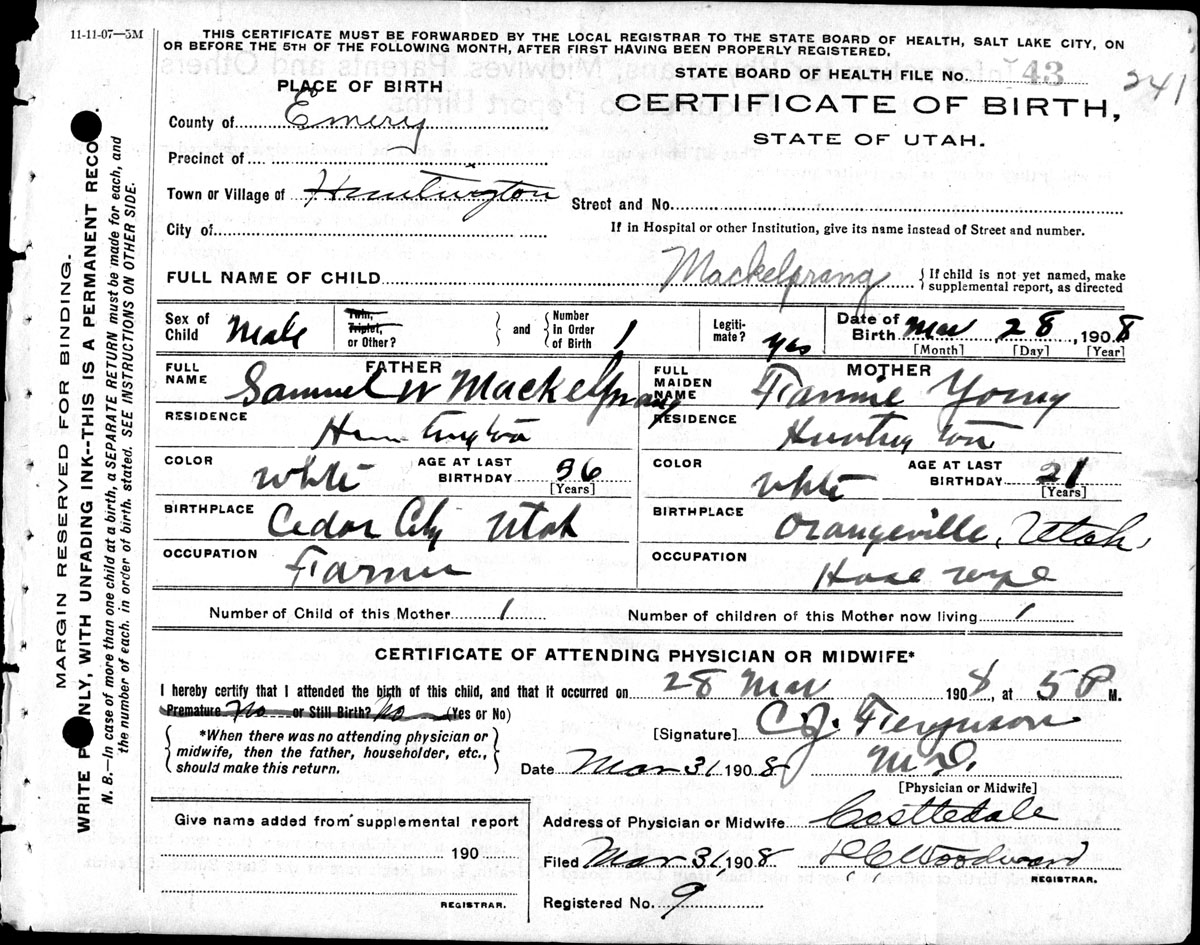 11-11-07—5M
THIS CERTIFICATE MUST BE FORWARDED BY THE LOCAL REGISTRAR TO THE STATE BOARD OF HEALTH, SALT LAKE CITY, ON
OR BEFORE THE 5TH OF THE FOLLOWING MONTH, AFTER FIRST HAVING BEEN PROPERLY REGISTERED.
STATE BOARD OF HEALTH FILE No. 43 241
PLACE OF BIRTH
CERTIFICATE OF BIRTH,
STATE OF UTAH.
County of Emery
Precinct of
Town or Village of Huntington
Street and No.
City of
If in Hospital or other Institution, give its name instead of Street and number.
FULL NAME OF CHILD Mackelprang { If child is not yet named, make
supplemental report, as directed
Sex of Child Male
Twin, Triplet, or Other? } and { Number In Order of Birth 1
Legiti- mate? yes
Date of Birth Mar 28, 1908
[Month] [Day] [Year]
FATHER
FULL NAME Samuel W Mackelprang
RESIDENCE Huntington
COLOR White AGE AT LAST BIRTHDAY 36 [Years]
BIRTHPLACE Cedar City Utah
OCCUPATION Farmer
MOTHER
FULL MAIDEN NAME Fannie Young
RESIDENCE Huntington
COLOR White AGE AT LAST BIRTHDAY 21 [Years]
BIRTHPLACE Orangeville, Utah
OCCUPATION House wife
Number of Child of this Mother 1 Number of children of this Mother now living 1
CERTIFICATE OF ATTENDING PHYSICIAN OR MIDWIFE*
I hereby certify that I attended the birth of this child, and that it occurred on 28 Mar 1908, at 5 P M.
Premature No or Still Birth? No (Yes or No)
{ *When there was no attending physician or
midwife, then the father, householder, etc.,
should make this return. }
[Signature] C. J. Ferguson
Date Mar 31 1908 M.D.
[Physician or Midwife]
Give name added from supplemental report
190
REGISTRAR.
Address of Physician or Midwife Castledale
Filed Mar 31, 1908 Woodward
REGISTRAR.
Registered No. 9
MARGIN RESERVED FOR BINDING.
WRITE P NLY, WITH UNFADING INK--THIS IS A PERMANENT RECO .
N. B.—In case of more than one child at a birth, a SEPARATE RETURN must be made for each, and
the number of each, in order of birth, stated. SEE INSTRUCTIONS ON OTHER SIDE.